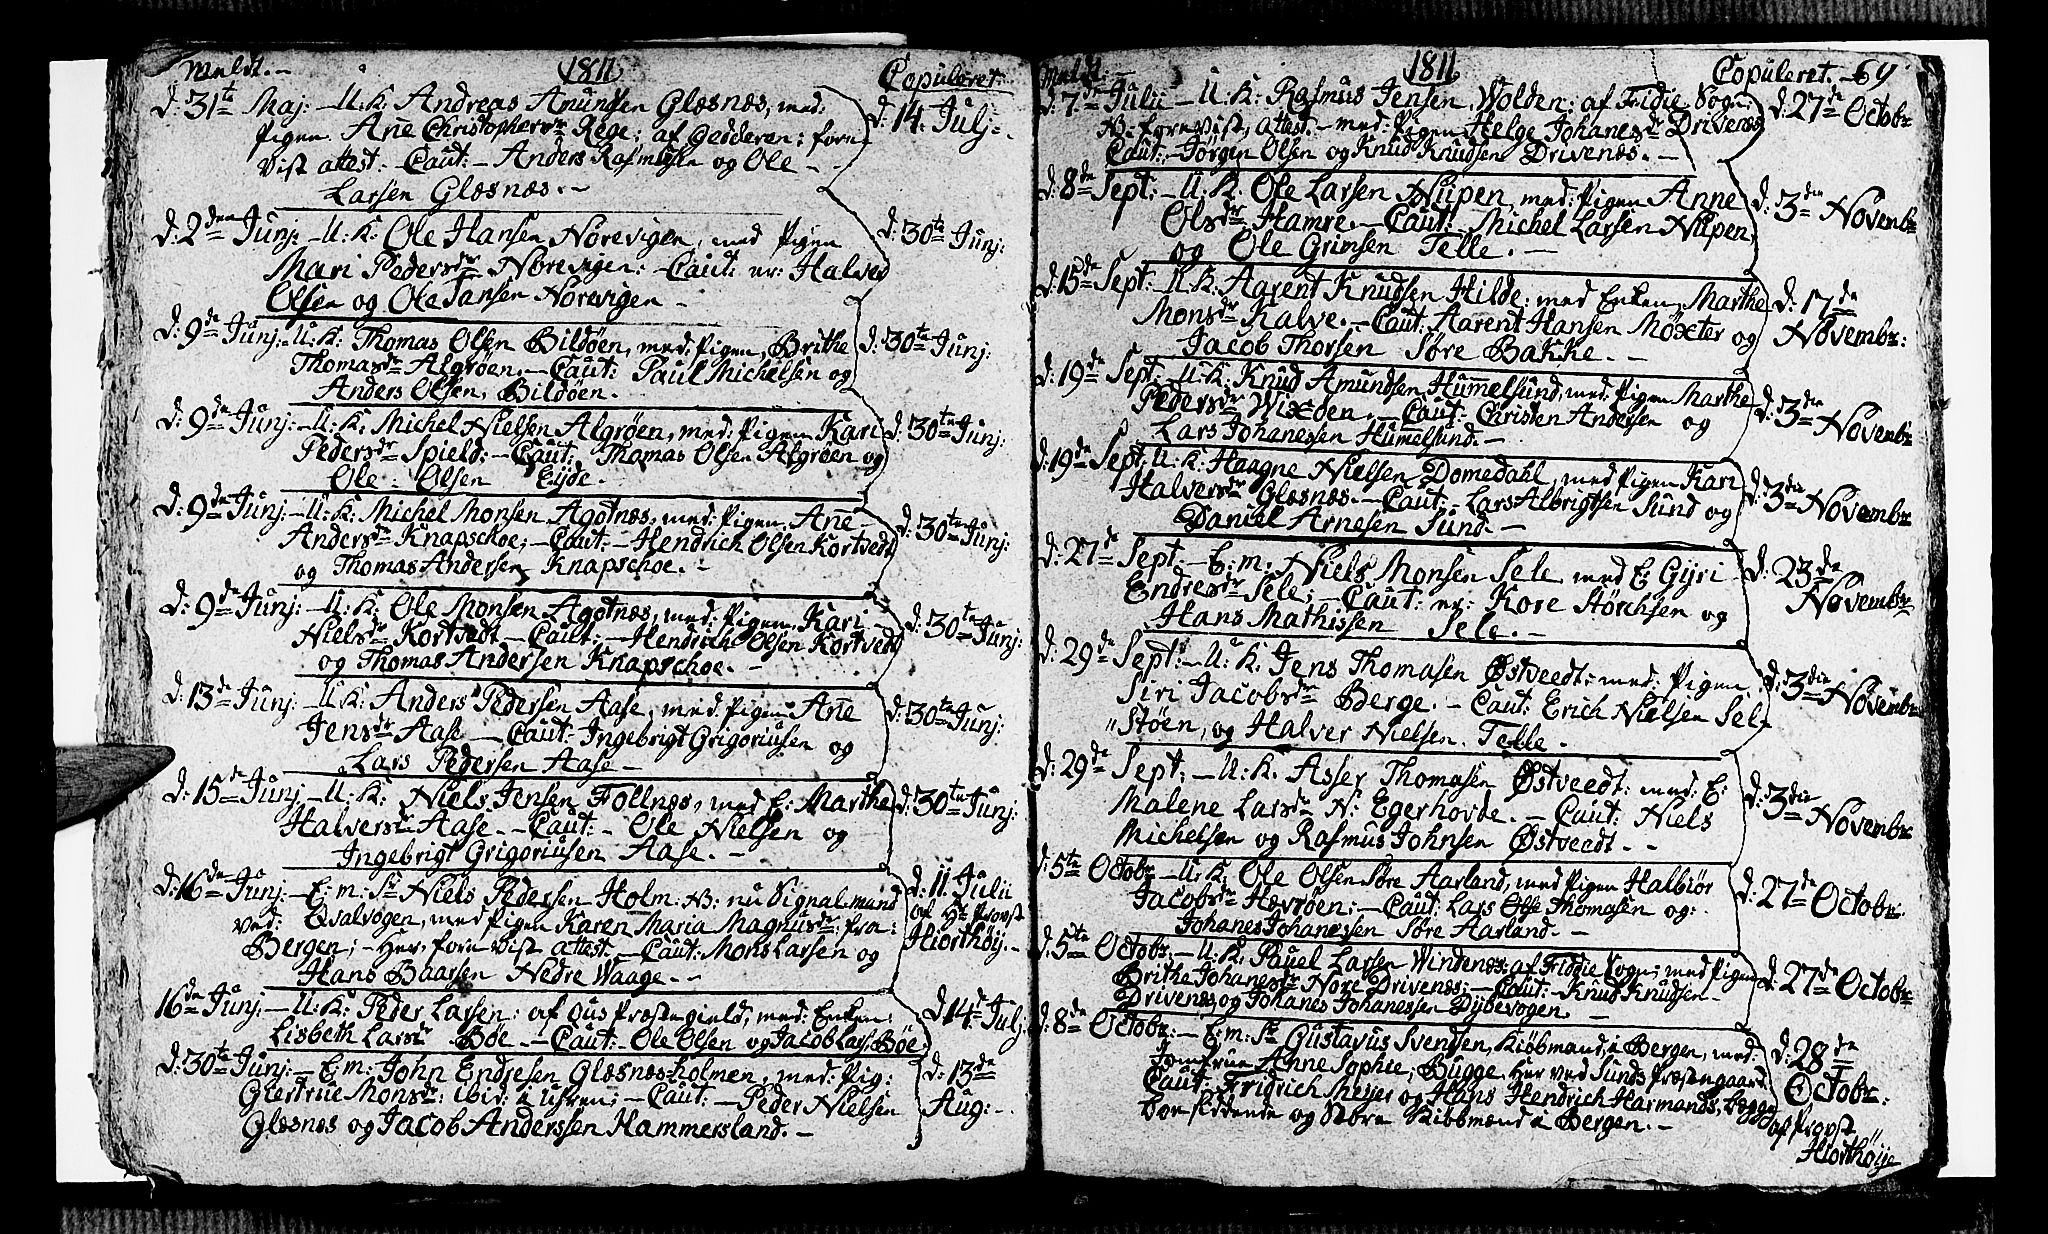 Meldt. - 1811 Copuleret
d: 31te Maj: - U: K: Andreas Amundsen Glæsnæs, med: d: 14 Julj:
Pigen Ane Christophersdr Rege: af Gedderen: forn
vist attest: - Caut: - Anders Rasmusen og Ole -
Larsen Glæsnæs. -
d: 2den Junj - U: K: Ole Hansen Norevigen, med Pigen d: 30te Junj:
Mari Pedersdr Norevigen: - Caut: er: Halver
Olsen og Ole Jansen Norevigen -
d: 9de Junj - U: K: Thomas Olsen Bildöen, med: Pigen, Brithe d: 30te Junj:
Thomasdr Algröen. - Caut: Paul Michelsen og
Anders Olsen, Bildöen.
d: 9de Junj: - U: K: Michel Nielsen Algröen, med: Pigen Kari d: 30te Junj:
Pedersdr Spield: - Caut: Thomas Olsen Algröen og
Ole: Olsen Eÿde. -
d: 9de Junj: - U: K: Michel Monsen Agotnæs, med: Pigen, Ane - d: 30te Junj:
Andersdr Knapschoe; - Caut: - Hendrich Olsen Kortvedt
og Thomas Andersen Knapschoe. -
d: 9de Junj: - U: K: Ole Monsen Agotnæs, med: Pigen, Kari - d: 30te Junj:
Nielsdr Kortvedt - Caut: - Hendrich Olsen Kortvedt
og Thomas Andersen Knapschoe. -
d: 13de Junj - U: K: Anders Pedersen Aase, med: Pigen Ane d: 30te Junj:
Jensdr Aase - Caut: Ingebrigt Grigoriusen og
Lars Pedersen Aase -
d: 15de Junj - U: K: Niels Jensen Follnæs, med E: Marthe d: 30te Junj:
Halversdr Aase. - Caut: - Ole Nielsen og
Ingebrigt Grigoriusen Aase. -
d: 16de Junj: - E: m: Sr Niels Pedersen Holm: NB: nu Signalmand d: 11 Julii
ved: Qvalvogen, med Pigen Karen Maria Magnusdr: fra: af Hr Provst
Bergen; - Her, forn vist attest: - Caut: Mons Larsen og Hiorthöÿ. -
Hans Baarsen Nedre Waage. -
16de Junj: - U: K: Peder Larsen: af Ous Præstegield, med: Enken: d 14de Julj:
Lisbeth Larsdr Böe. - Caut: - Ole Olsen og Jacob Lars: Böe
d: 30te Junj: - E: m: John Endresen Glæsnæsholmen, med: Pig: d: 13de
Giertrue Monsdr: ibid: - Caut: - Peder Nielsen Aug: -
Glæsnæs og Jacob Anderssen Hammersland. -
Meldt: - 1811 Copuleret. - 69
d: 7de Julii - U: K: Rasmus Jensen Wolden: af Fidie Sogn: d: 27de Octobr
NB: fornevist, attest. - med: Pigen Helge Johanesdr Drivenæs
Caut: - Jörgen Olsen og Knud Knudsen Drivenæs. -
d: 8de Sept: - U: K: Ole Larsen Nipen, med: Pigen Anne d: 3die Novembr
Olsdr Hamre. - Caut: - Michel Larsen Nipen,
og Ole Grimsen Telle. -
d: 15de Sept: U: K: Aarent Knudsen Hilde: med Enken, Marthe d: 17de
Monsdr Kalve. - Caut: Aarent Hansen Möxter og Novembr:
Jacob Thorsen Söre Bakke. -
d: 19de Sept: - U: K: Knud Amundsen Hummelsund, med: Pigen Marthe d: 3die
Pedersdr Wixöen. - Caut: Christen Andersen og Novembr
Lars Johanessen Humelsund. -
d: 19de Sept: U: K: Haagne Nielsen Domedahl, med Pigen Kari d: 3die
Halversdr Glæsnæs. - Caut: Lars Albrigtsen Sund og Novembr
Daniel Arnesen Sund. -
d: 27de Sept: - E: m: Niels Monsen Sele med E: Gÿri d: 23de
Endresdr Sele; - Caut: er: Kore Störchsen og Novembr
Hans Mathissen Sele. -
d: 29de Sept: - U: K: Jens Thomasen Östveedt: med: Pigen d: 3die
Siri Jacobsdr Berge. - Caut: Erich Nielsen Sel- Novembr
"Stöen, og Halver Nielsen Telle.
d: 29de Sept: - U: K: Asser Thomasen Östveedt: med: E: d: 3die
Malene Larsdr N: Egerhovde. - Caut: Niels Novembr
Michelsen og Rasmus Johnsen Östveedt. -
d: 5te Octobr - U: K: Ole Olsen Söre Aarland, med Pigen Halbiör d: 27de
Jacobsdr Hævröen; - Caut: Lars Olse Thomasen og: Octobr:
Johanes Johanessen Söre Aarland. -
d: 5te Octobr: - U: K: Pauel Larsen Windenæs: af Fiddie Sogn; med Pigen d: 27de
Brithe Johanesdr Nore Drivenæs; - Caut: - Knud Knudsen Octobr
Drivenæs og Johanes Johanessen Dÿbevogen. -
d: 8de Octobr: - E: m: Sr Gustavus Svendsen, Kiöbmand i Bergen, med: d: 28de
Jomfrue Anne Sophie, Bugge, Her ved Sunds Præstegaard Octobr:
Caut: Fridrich Meyer og Hans Hendrich Harmands, begge af Provst
Boesiddende og Store Kiöbmænd i Bergen. - Hiorthöÿe